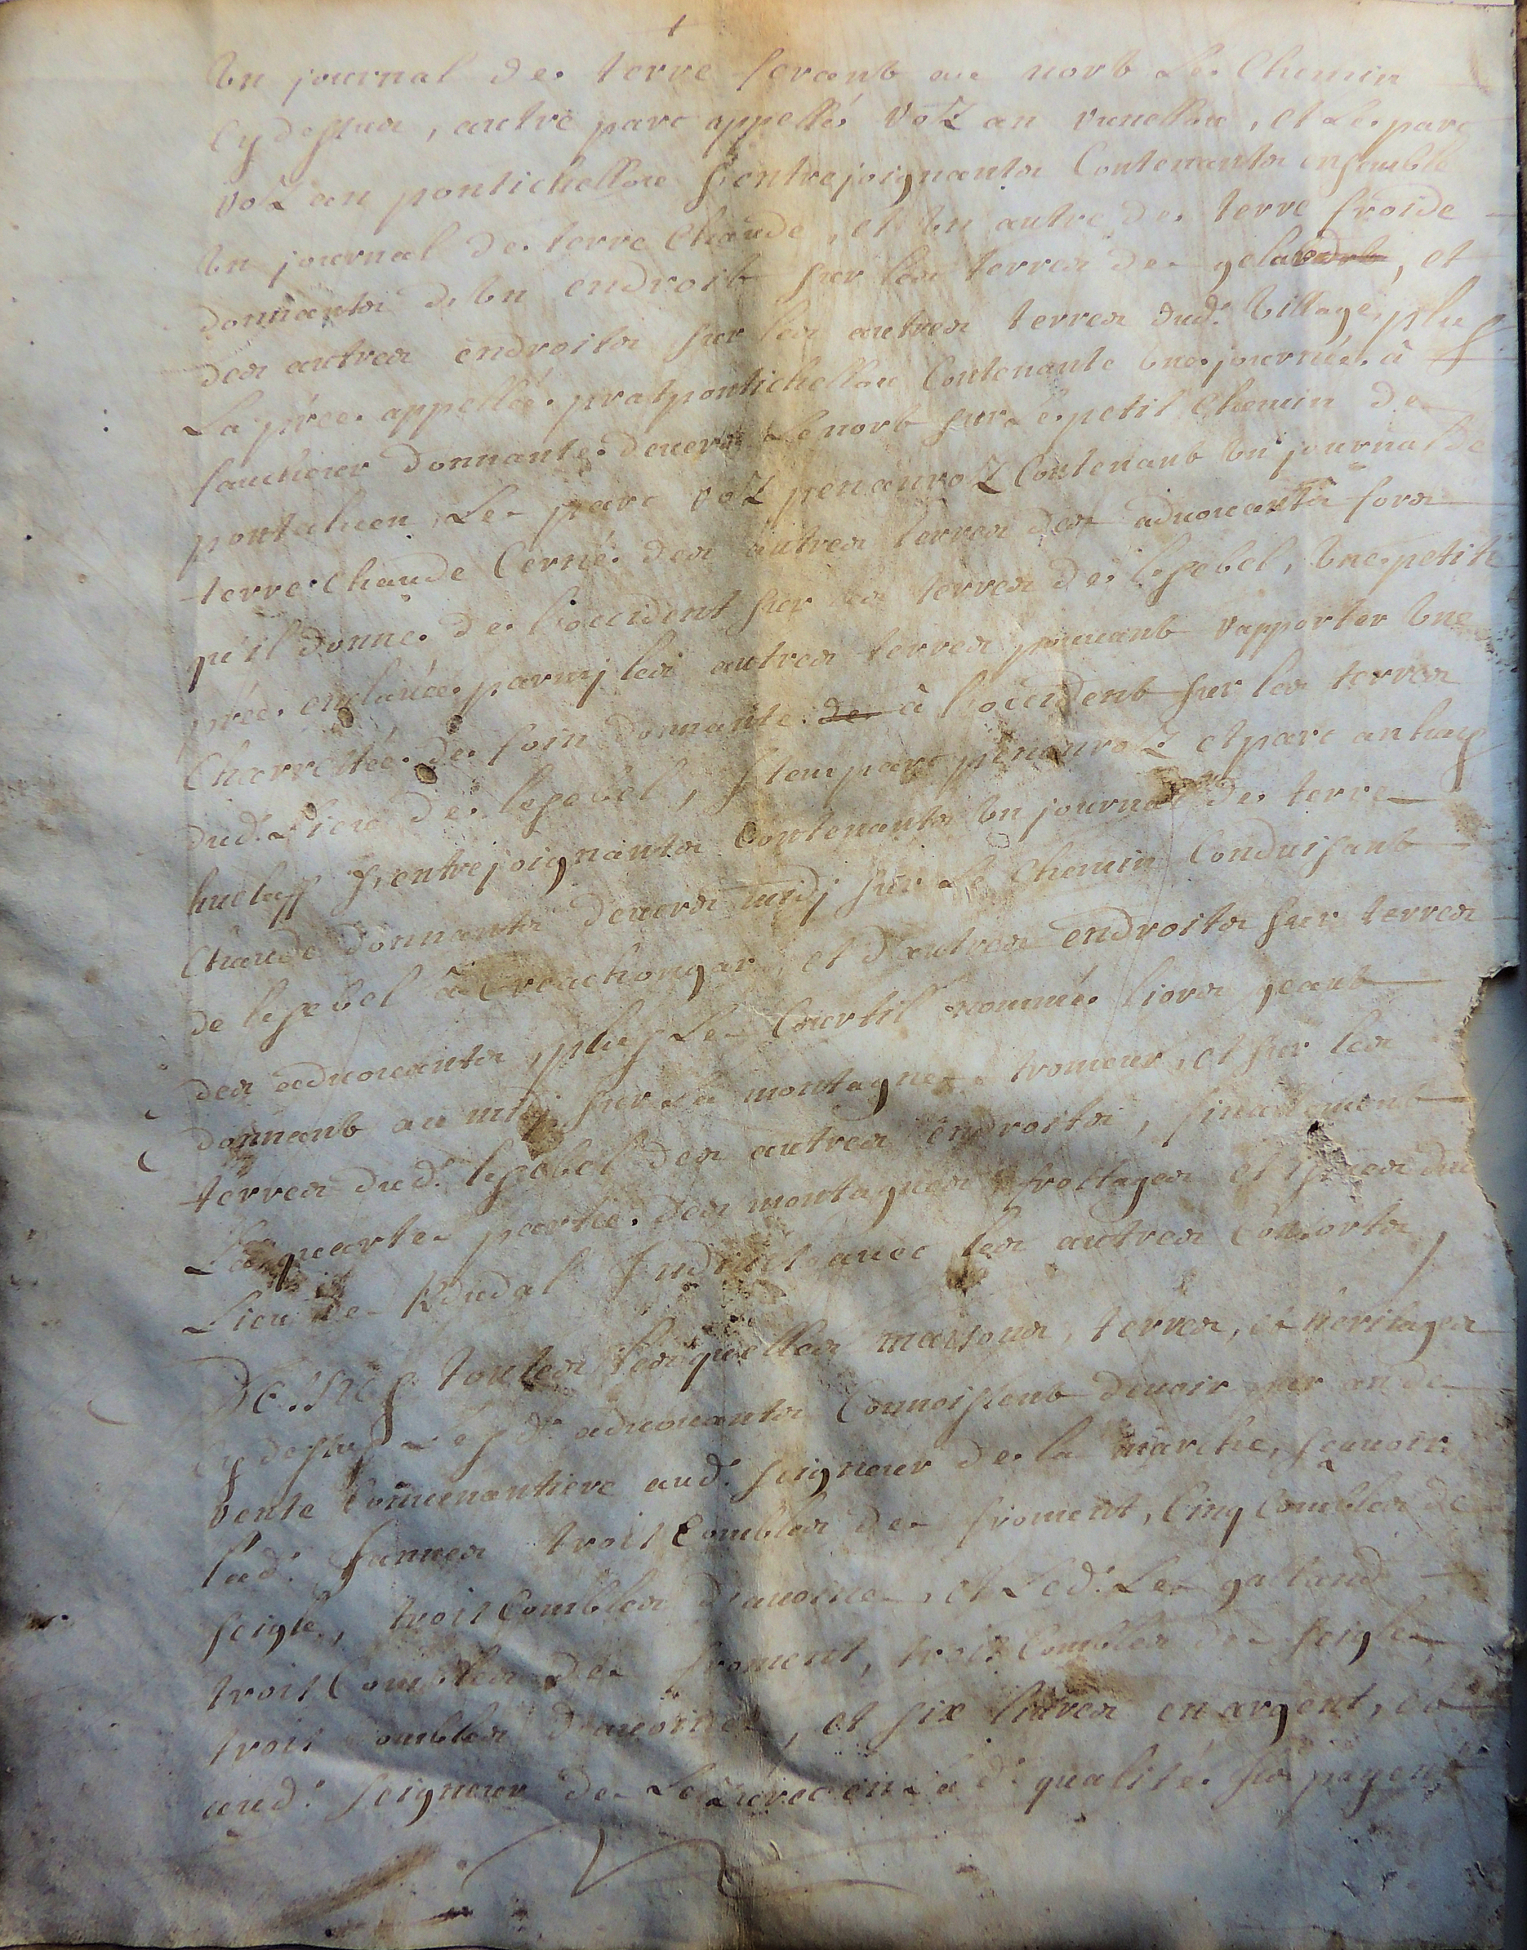 Un journal de terre ferant au nort le chemin
cydessus, autre parc appellé roz an runellou, et le parc
roz an pontichellou s'entrejoignants contenants ensemble
un journal de terre chaude, et un autre de terre froide
donnants d'un endroit sur les terres de, et
des autres endroits sur les autres terres dud. village, plus
la prée appellée prat pontichellou contenante une journée à
faucheur donnante devers le nort sur le petit chemin de
le parc roz penanroz contenant un journal de
terre chaude cerné des autres terres des advouants fors
qu'il donne de l'occident sur les terres de lesebel, une petite
prée enclavée parmj les autres terres pouvant rapporter une
charrettée de foin donnante de à l'occident sur les terres
dud. lieu de lesebel, Item parc penanroz et parc an hay
huelaff s'entrejoignants contenants un journal de terre
chaude donnants devers midj sur le chemin conduisant
de lesebel à croachongar, et d'autres endroits sur terres
des advouants, plus le courtil nommé liors geant
donnant au midj sur la montagne tromeur, et sur les
terres dud. lesebel des autres endroits, finalement
la quarte partie des montagnes frostages et issues du
lieu de Kdudal Indivis avec les autres consorts,
DESUS toutes lesquelles maisons, terres, et héritages
cydessus les d. advouants connoissent devoir par an de
rente convenantiere aud. seigneur de la marche, sçavoir
lad. trois combles de froment, cinq combles de
seigle, trois combles d'avoine, et led. Le galland
trois combles de froment, trois combles de seigle,
trois combles d'avoine, et six livres en argent, et
aud. seigneur de en la d. qualité ils payent